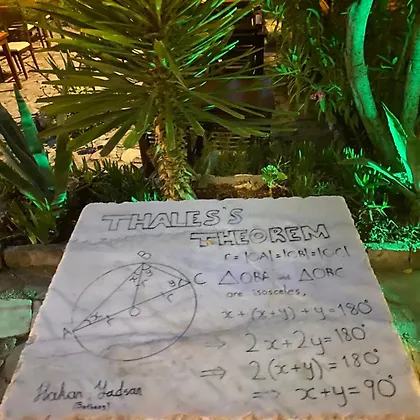 THALES'S
THEOREM
r = |OA| = |OB| = |OC|
△OBA and △OBC
are isosceles,
x + (x + y) + y = 180°
⇒ 2x + 2y = 180°
⇒ 2(x + y) = 180°
⇒ x + y = 90°
B
x y
C
y
r
O
A x
r
Hakan Yadsan